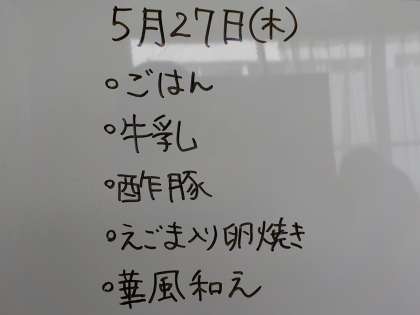 5月27日(木)
○ごはん
○牛乳
○酢豚
○えごま入り卵焼き
○華風和え